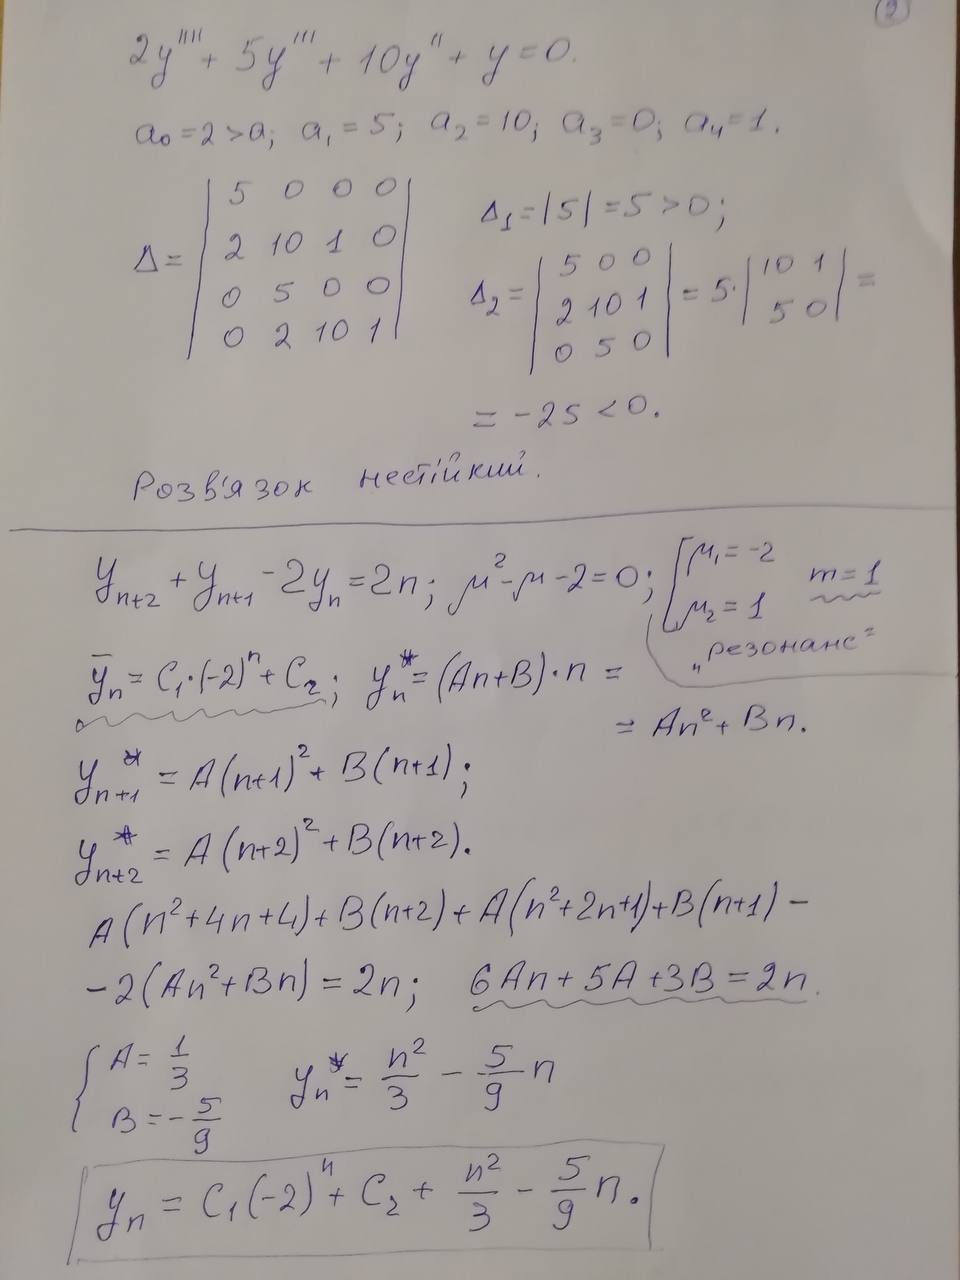 2
2y'''' + 5y''' + 10y'' + y = 0.
a₀ = 2 > a; a₁ = 5; a₂ = 10; a₃ = 0; a₄ = 1.
Δ = | 5 0 0 0 |
| 2 10 1 0 |
| 0 5 0 0 |
| 0 2 10 1 |
Δ₁ = |5| = 5 > 0;
Δ₂ = | 5 0 0 | = 5· | 10 1 | =
| 2 10 1 | | 5 0 |
| 0 5 0 |
= -25 < 0.
Розв'язок нестійкий.
yₙ₊₂ + yₙ₊₁ - 2yₙ = 2n; μ² - μ - 2 = 0; [ μ₁ = -2
μ₂ = 1
m = 1
„резонанс"
ȳₙ = C₁·(-2)ⁿ + C₂; yₙ* = (An+B)·n =
= An² + Bn.
yₙ₊₁* = A(n+1)² + B(n+1);
yₙ₊₂* = A(n+2)² + B(n+2).
A(n²+4n+4) + B(n+2) + A(n²+2n+1) + B(n+1) -
- 2(An²+Bn) = 2n; 6An + 5A + 3B = 2n.
{ A = 1/3
B = -5/9
yₙ* = n²/3 - 5/9 n
yₙ = C₁(-2)ⁿ + C₂ + n²/3 - 5/9 n.